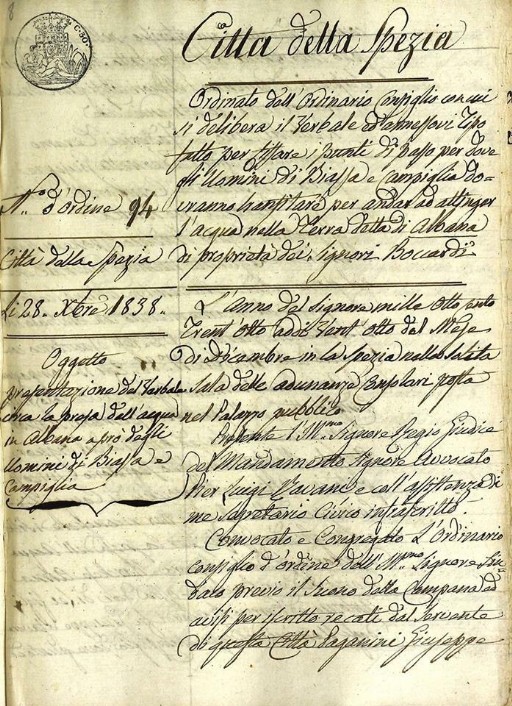 8
C. 50.
Città della Spezia
Ordinato dell'Ordinario Consiglio con cui
si delibera il Verbale ed annessovi Tipo
fatto per fissare i punti di Basso per dove
gli Uomini di Biassa e Campiglia do=
vranno transitare per andar ad attinger
l'acqua nella Terra detta di Albana
di proprietà dei Signori Boccardi
N.º d'ordine 94
Città della Spezia
Li 28. Xbre 1838.
Oggetto
presentazione del Verbale
circa la presa dell'acqua
in Albana a pro degli
Uomini di Biassa e
Campiglia
L'anno del Signore mille otto cento
Trent'otto addì Vent'otto del Mese
di Dicembre in la Spezia nella solita
Sala delle adunanze Consolari posta
nel Palazzo pubblico
Presente l'Ill.mo Signore Regio Giudice
del Mandamento Signore Avvocato
Pier Luigi e coll'assistenza di
me Segretario Civico infrascritto.
Convocato e Congregato L'Ordinario
consiglio d'ordine dell'Ill.mo Signore Sin=
daco previo il suono della Campana ed
avvisi per iscritto recati dal Servente
di questa Città Paganini Giuseppe